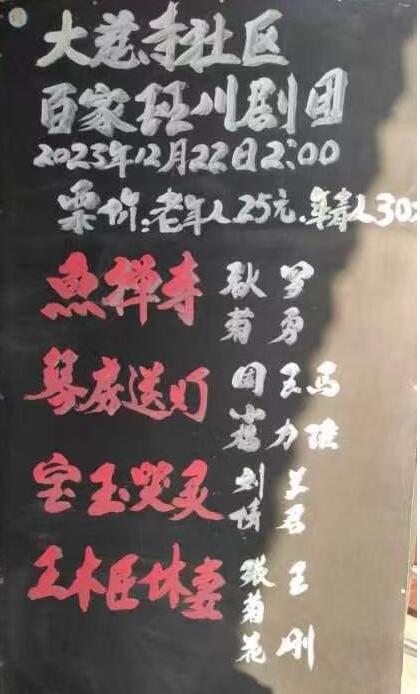 大慈寺社区
百家班川剧团
2023年12月22日2:00
票价:老年人25元.年青人30
魚禅寺
菊
罗勇
琴房送灯
周小
王力
马
宝玉哭灵
刘倩
兰君
王木臣休妻
张菊花
王刚